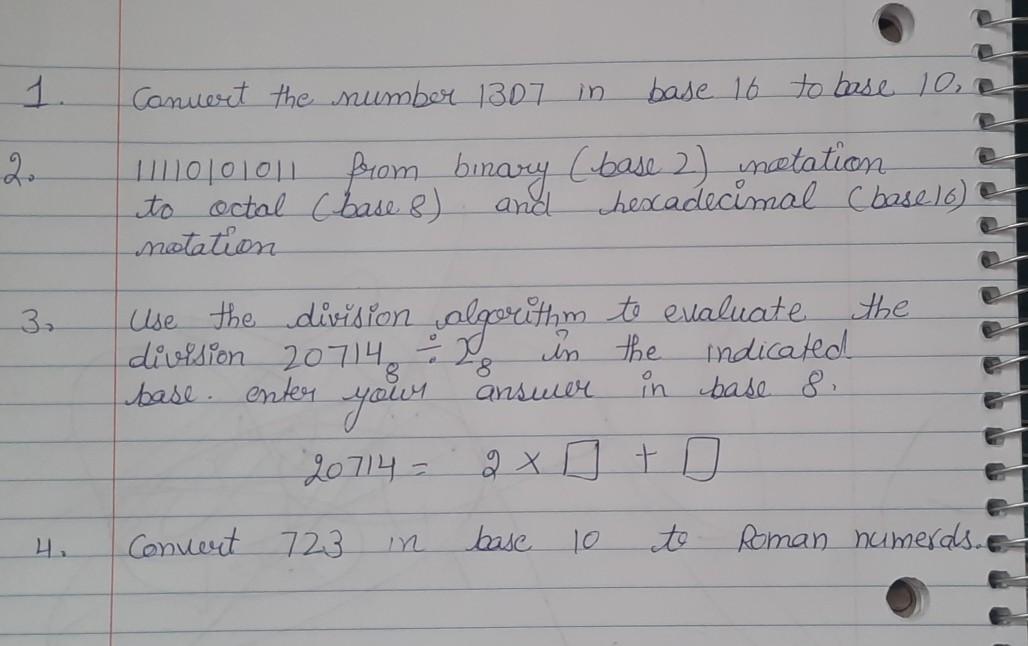 1. Convert the number 1307 in base 16 to base 10.
2. 11110101011 from binary (base 2) notation
to octal (base 8) and hexadecimal (base 16)
notation
3. Use the division algorithm to evaluate the
division 20714₈ ÷ 2₈ in the indicated
base. enter your answer in base 8.
20714 = 2 × □ + □
4. Convert 723 in base 10 to Roman numerals.